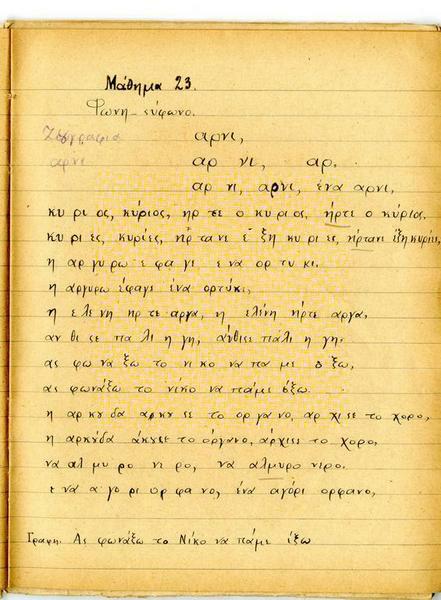 Μάθημα 23.
Φωνη - σύφωνο.
Ζωγραφια αρνι,
αρνι αρ νι, αρ.
αρ νι, αρνι, ένα αρνι,
κυ ρι ος, κύριος, ηρ τε ο κυ ριος. ήρτε ο κύριος.
κυ ρι ες, κυρίες, ηρ τανι ε ξη κυ ρι ες, ήρτανι έξη κυρίες,
η αρ γυ ρω ε φα γι ε να ορ τυ κι.
η αργυρω έφαγι ένα ορτύκι,
η ε λε νη ηρ τε αργα, η ελένη ήρτε αργα,
αν θι σε πα λι η γη, άνθισε πάλι η γη.
ας φω να ξω το νι κο να πα με ο ξω,
ας φωνάξω το νίκο να πάμε όξω.
η αρ κυ δα ακυ σε το ορ γα νο, αρ χι σε το χορο,
η αρκύδα άκυσε το όργανο, άρχισε το χορο,
να αλ μυ ρο νι ρο, να αλμυρο νιρο.
ε να α γο ρι ορ φα νο, ένα αγόρι ορφανο,
Γραφη. Ας φωνάξω το Νίκο να πάμε έξω